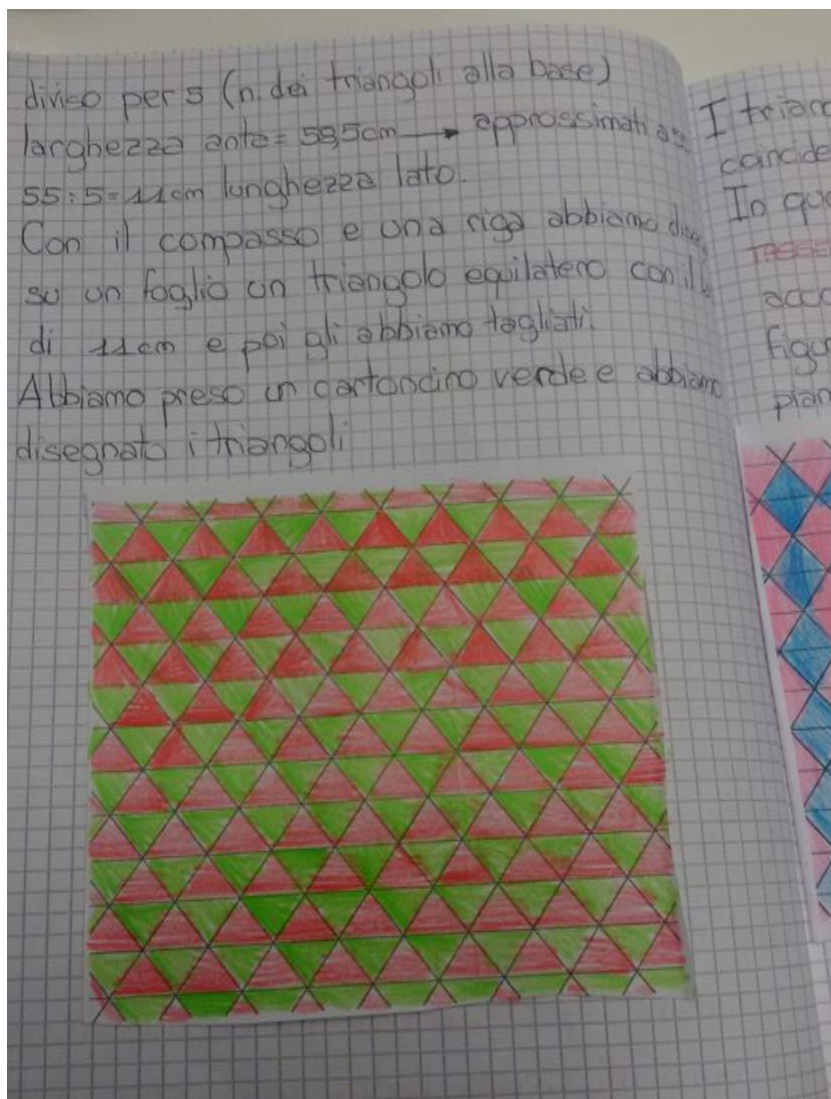 diviso per 5 (n. dei triangoli alla base)
larghezza ante = 58,5cm → approssimati a
55:5=11cm lunghezza lato.
Con il compasso e una riga abbiamo
su un foglio un triangolo equilatero con il
di 11cm e poi gli abbiamo tagliati.
Abbiamo preso un cartoncino verde e abbiamo
disegnato i triangoli
I trian
coincide
In que
acco
figu
pian